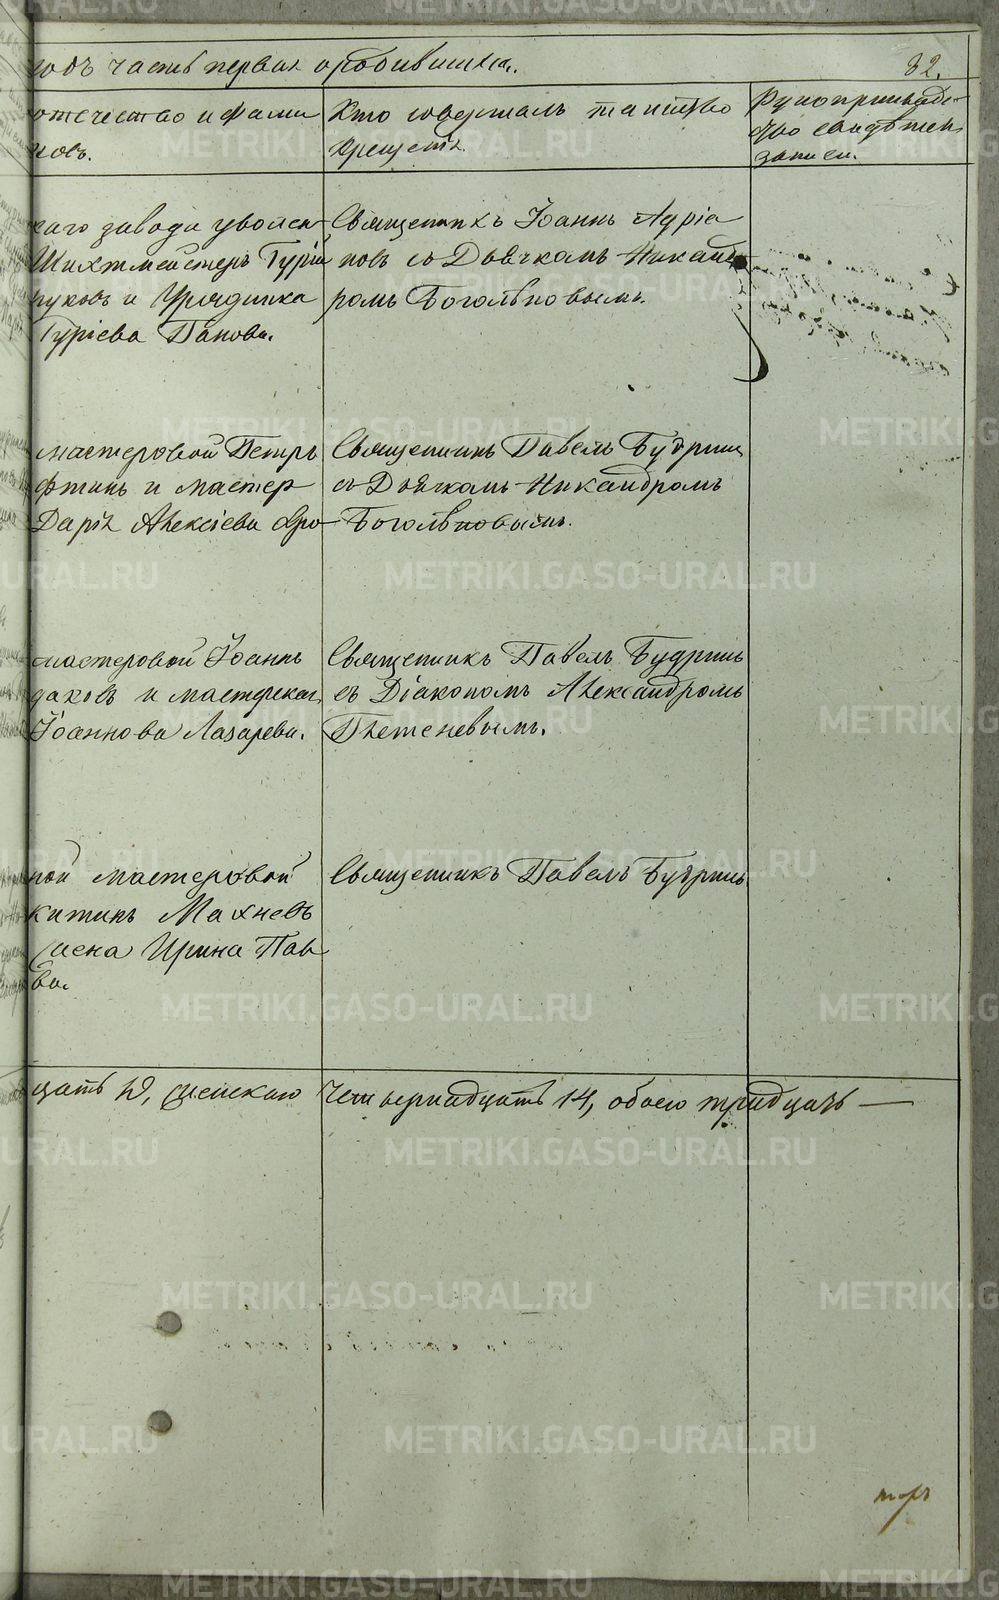 годъ часть первая о родившихся.
82.
отечество и фами
новъ.
Кто совершалъ таинство
крещенія.
Рукоприкладс-
тво свидѣтел.
записи.
каго завода уволен
Шихтмейстеръ Гурій
пуковъ и Урядника
Гуріева Панова.
Священникъ Іоаннъ Адріа
новъ съ Дьячкомъ Никанд
ромъ Боголѣповымъ.
мастеровой Петръ
фтинъ и мастер
Дарія Алексіева Фро
Священникъ Павелъ Будринъ
съ Дьячкомъ Никандромъ
Боголѣповымъ.
мастеровой Іоаннъ
даковъ и мастерская
Іоаннова Лазарева.
Священникъ Павелъ Будринъ
съ Діакономъ Александромъ
Плетеневымъ.
ной мастеровой
китинъ Махневъ
жена Ирина Пав
ва.
Священникъ Павелъ Будринъ
цать женскаго четырнадцать 14, обоего тридцать —
METRIKI.GASO-URAL.RU